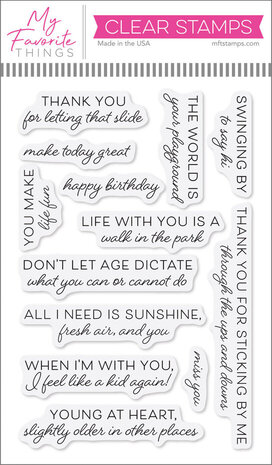 My
Favorite
THINGS
CLEAR STAMPS
Made in the USA
mftstamps.com
THANK YOU
for letting that slide
make today great
happy birthday
YOU MAKE
life fun
THE WORLD IS
your playground
SWINGING BY
to say hi
LIFE WITH YOU IS A
walk in the park
DON'T LET AGE DICTATE
what you can or cannot do
ALL I NEED IS SUNSHINE,
fresh air, and you
WHEN I'M WITH YOU,
I feel like a kid again!
miss you
THANK YOU FOR STICKING BY ME
through the ups and downs
YOUNG AT HEART,
slightly older in other places